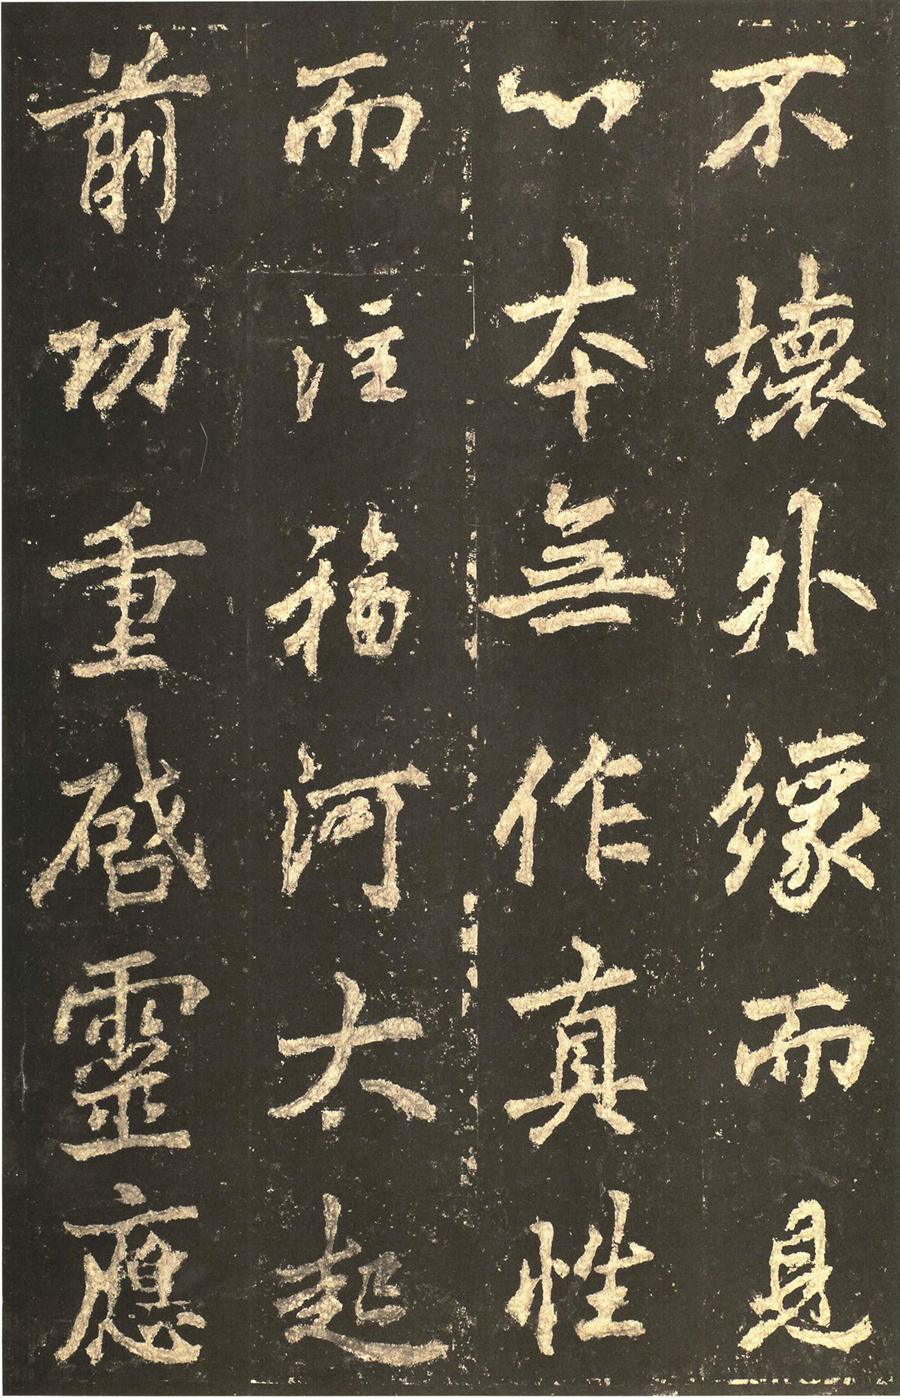 不壞外緣而見
心本無作真性
而注福河大起
前功重啟靈應